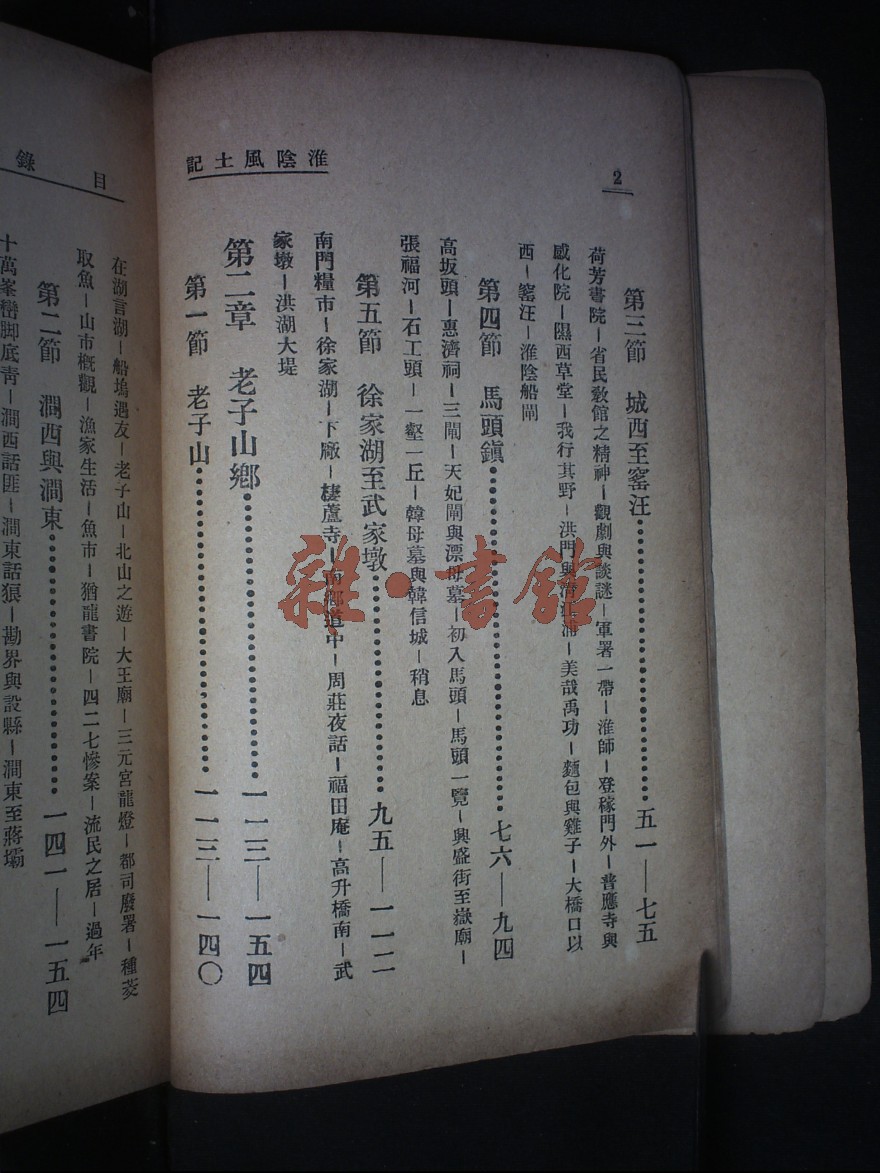 2
淮陰風土記
第三節　城西至窰汪 五一—七五
荷芳書院—省民敎館之精神—觀劇與談謎—軍署一帶—淮師—登稼門外—普應寺與
感化院—隰西草堂—我行其野—洪門與清江浦—美哉禹功—麵包與雞子—大橋口以
西—窰汪—淮陰船閘
第四節　馬頭鎭 七六—九四
高坂頭—惠濟祠—三閘—天妃閘與漂母墓—初入馬頭—馬頭一覽—興盛街至嶽廟—
張福河—石工頭—一壑一丘—韓母墓與韓信城—稍息
第五節　徐家湖至武家墩 九五—一一二
南門糧市—徐家湖—下廠—棲蘆寺—南鄉道中—周莊夜話—福田庵—高升橋南—武
家墩—洪湖大堤
第二章　老子山鄉 一一三—一五四
第一節　老子山 一一三—一四〇
目錄
在湖言湖—船塢遇友—老子山—北山之遊—大王廟—三元宮龍燈—都司廢署—種茭
取魚—山市槪觀—漁家生活—魚市—猶龍書院—四二七慘案—流民之居—過年
第二節　澗西與澗東 一四一—一五四
十萬峯巒脚底靑—澗西話匪—澗東話狼—勘界與設縣—澗東至蔣壩
雜·書館